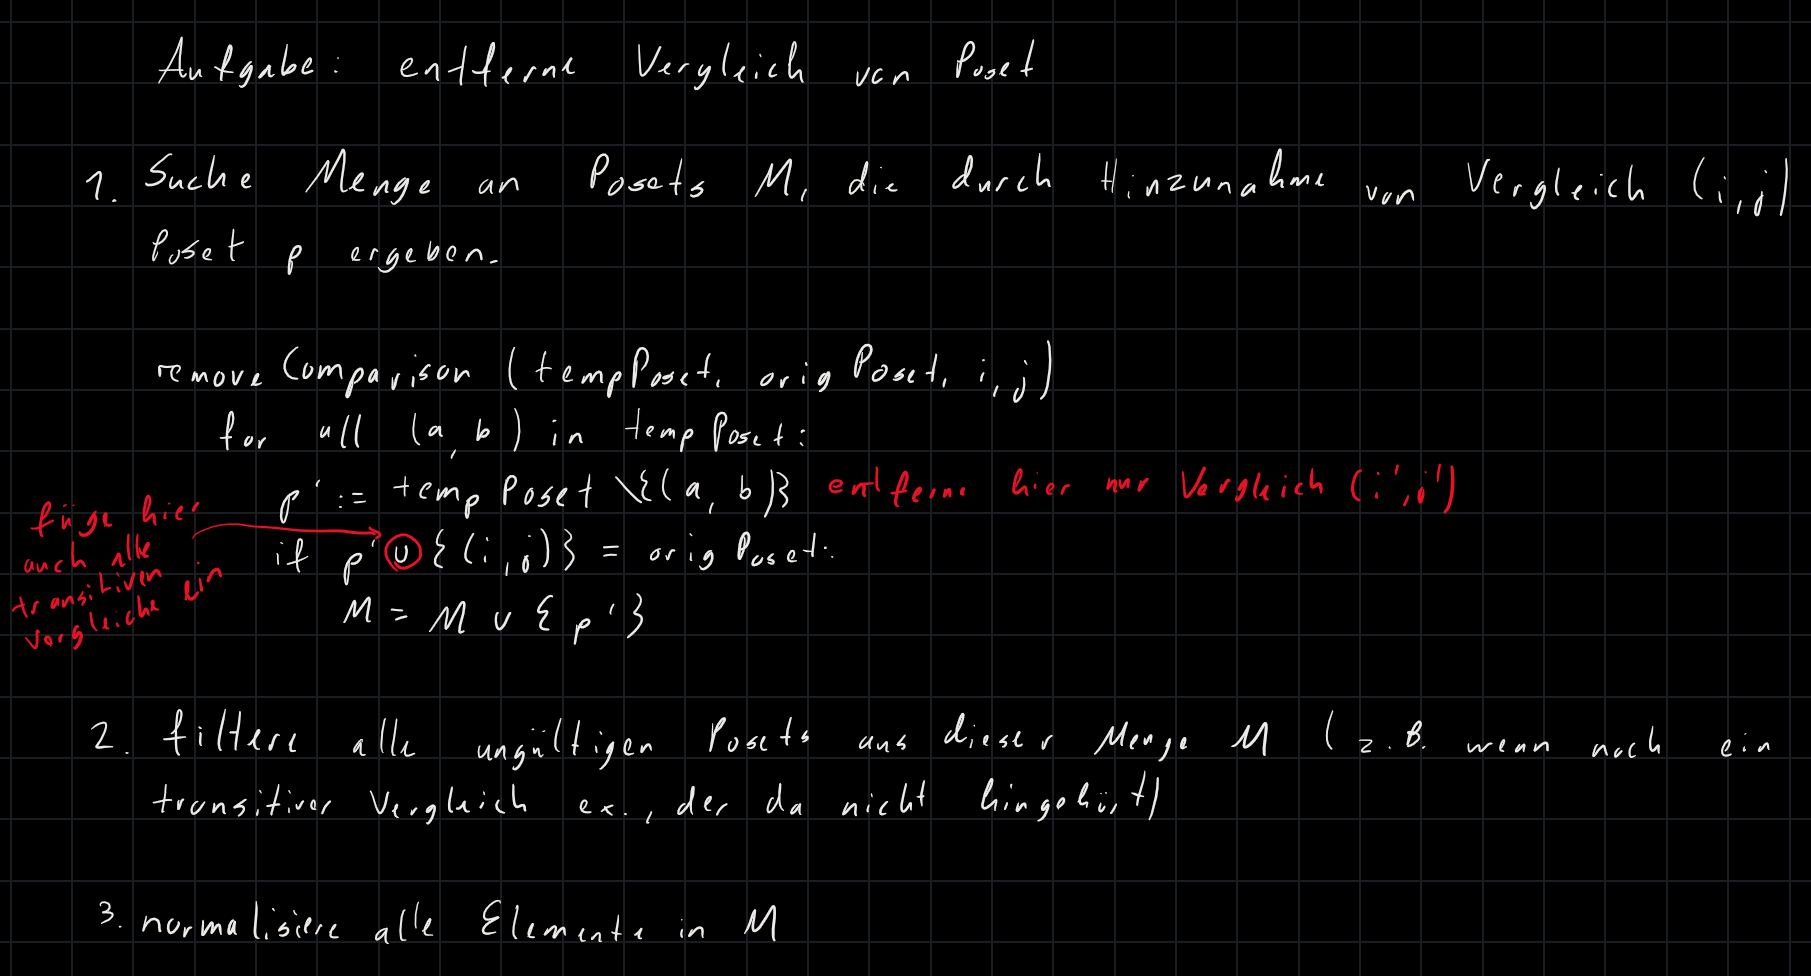 Aufgabe: entferne Vergleich von Poset
1. Suche Menge an Posets M, die durch Hinzunahme von Vergleich (i,j)
Poset p ergeben.
removeComparison (tempPoset, origPoset, i, j)
for all (a, b) in tempPoset:
p' := tempPoset \ {(a, b)} entferne hier nur Vergleich (i',j')
füge hier
auch alle
transitiven
Vergleiche ein
if p' ∪ {(i,j)} = origPoset:
M = M ∪ {p'}
2. filtere alle ungültigen Posets aus dieser Menge M (z.B. wenn noch ein
transitiver Vergleich ex., der da nicht hingehört)
3. normalisiere alle Elemente in M